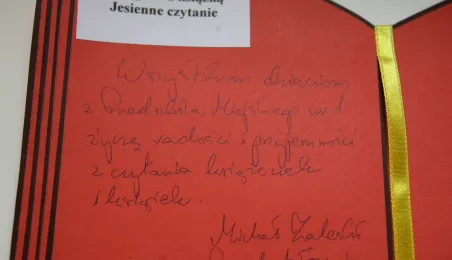 książką
Jesienne czytanie
Wszystkim dzieciom
z Przedszkola Miejskiego nr 1
życzę radości i przyjemności
z czytania książeczek
i książek.
Michał Zaleski